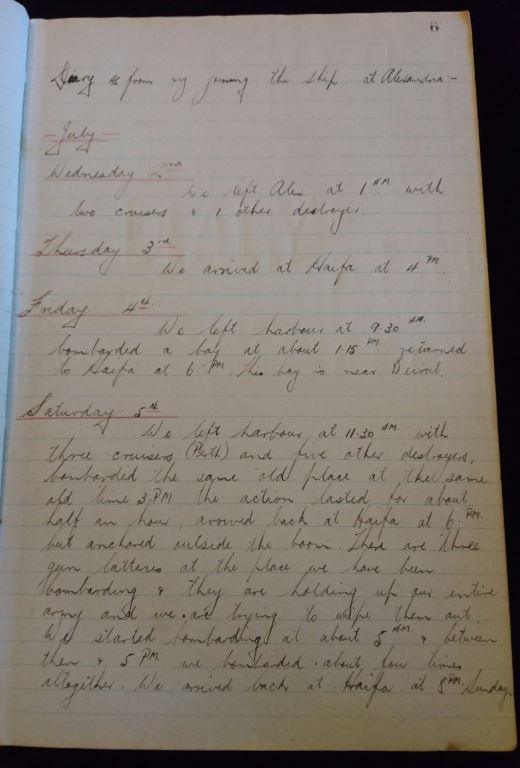 6
Diary from my joining the ship at Alexandria:-
- July -
Wednesday 2nd
We left Alex at 1 AM with
two cruisers & 1 other destroyer.
Thursday 3rd
We arrived at Haifa at 4 PM.
Friday 4th
We left harbour at 9.30 AM.
bombarded a bay at about 1.15 PM returned
to Haifa at 6 PM. This bay is near Beirut.
Saturday 5th
We left harbour at 11.30 AM with
three cruisers (Perth) and five other destroyers,
bombarded the same old place at the same
old time 3 PM. the action lasted for about
half an hour, arrived back at Haifa at 6 PM.
but anchored outside the boom. There are three
gun batteries at the place we have been
bombarding & they are holding up our entire
army and we are trying to wipe them out.
We started bombarding at about 5 AM & between
then & 5 PM we bombarded about four times
altogether. We arrived back at Haifa at 8 PM. Sunday.